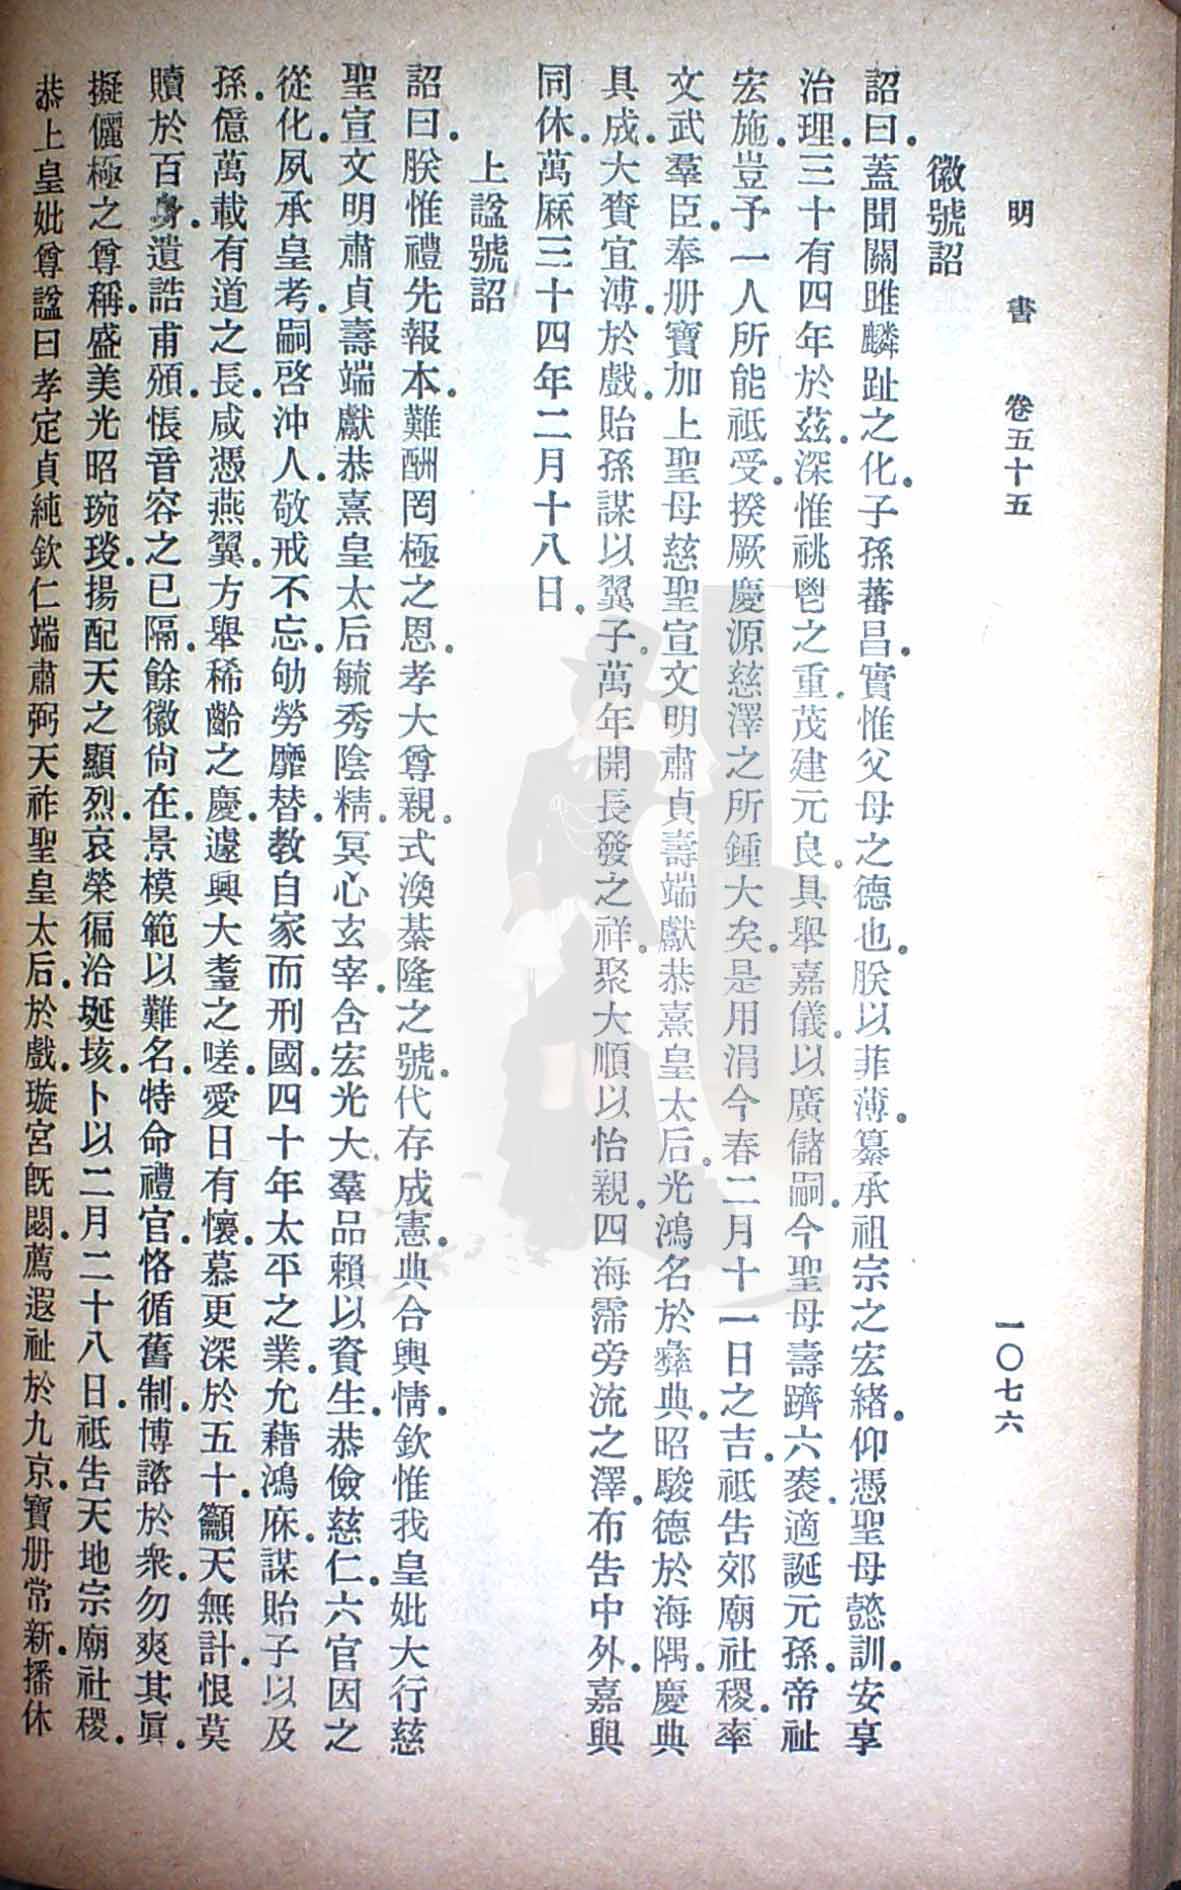 明書 卷五十五 一〇七六
徽號詔
詔曰。蓋聞關雎麟趾之化。子孫蕃昌。實惟父母之德也。朕以菲薄。纂承祖宗之宏緒。仰憑聖母懿訓。安享
治理。三十有四年於茲。深惟祧鬯之重。茂建元良。具舉嘉儀。以廣儲嗣。今聖母壽躋六袠。適誕元孫。帝祉
宏施。豈予一人所能祗受。揆厥慶源。慈澤之所鍾大矣。是用涓今春二月十一日之吉。祗告郊廟社稷。率
文武羣臣。奉册寶加上聖母慈聖宣文明肅貞壽端獻恭熹皇太后。光鴻名於彝典。昭駿德於海隅。慶典
具成。大賚宜溥。於戲。貽孫謀以翼子。萬年開長發之祥。聚大順以怡親。四海霈旁流之澤。布告中外。嘉與
同休。萬厤三十四年二月十八日。
上諡號詔
詔曰。朕惟禮先報本。難酬罔極之恩。孝大尊親。式渙綦隆之號。代存成憲。典合輿情。欽惟我皇妣大行慈
聖宣文明肅貞壽端獻恭熹皇太后。毓秀陰精。冥心玄宰。含宏光大。羣品賴以資生。恭儉慈仁。六官因之
從化。夙承皇考。嗣啓沖人。敬戒不忘。劬勞靡替。教自家而刑國。四十年太平之業。允藉鴻庥。謀貽子以及
孫。億萬載有道之長。咸憑燕翼。方舉稀齡之慶。遽興大耋之嗟。愛日有懷。慕更深於五十。籲天無計。恨莫
贖於百身。遺誥甫頒。悵音容之已隔。餘徽尙在。景模範以難名。特命禮官。恪循舊制。博諮於衆。勿爽其眞。
擬儷極之尊稱。盛美光昭琬琰。揚配天之顯烈。哀榮徧洽埏垓。卜以二月二十八日。祗告天地宗廟社稷。
恭上皇妣尊諡曰孝定貞純欽仁端肅弼天祚聖皇太后。於戲。璇宮旣閟。薦遐祉於九京。寶册常新。播休